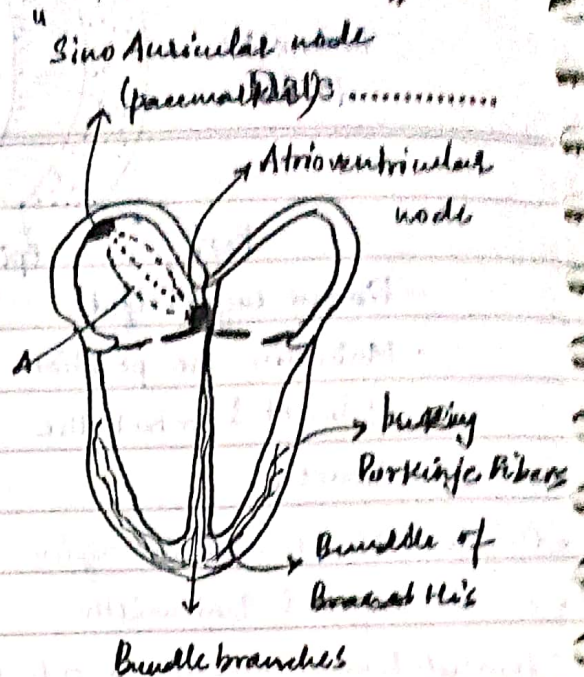 Sino Auricular node
(pacemaker)
Atrioventricular
node
A
Purkinje Fibers
Bundle of
His
Bundle branches